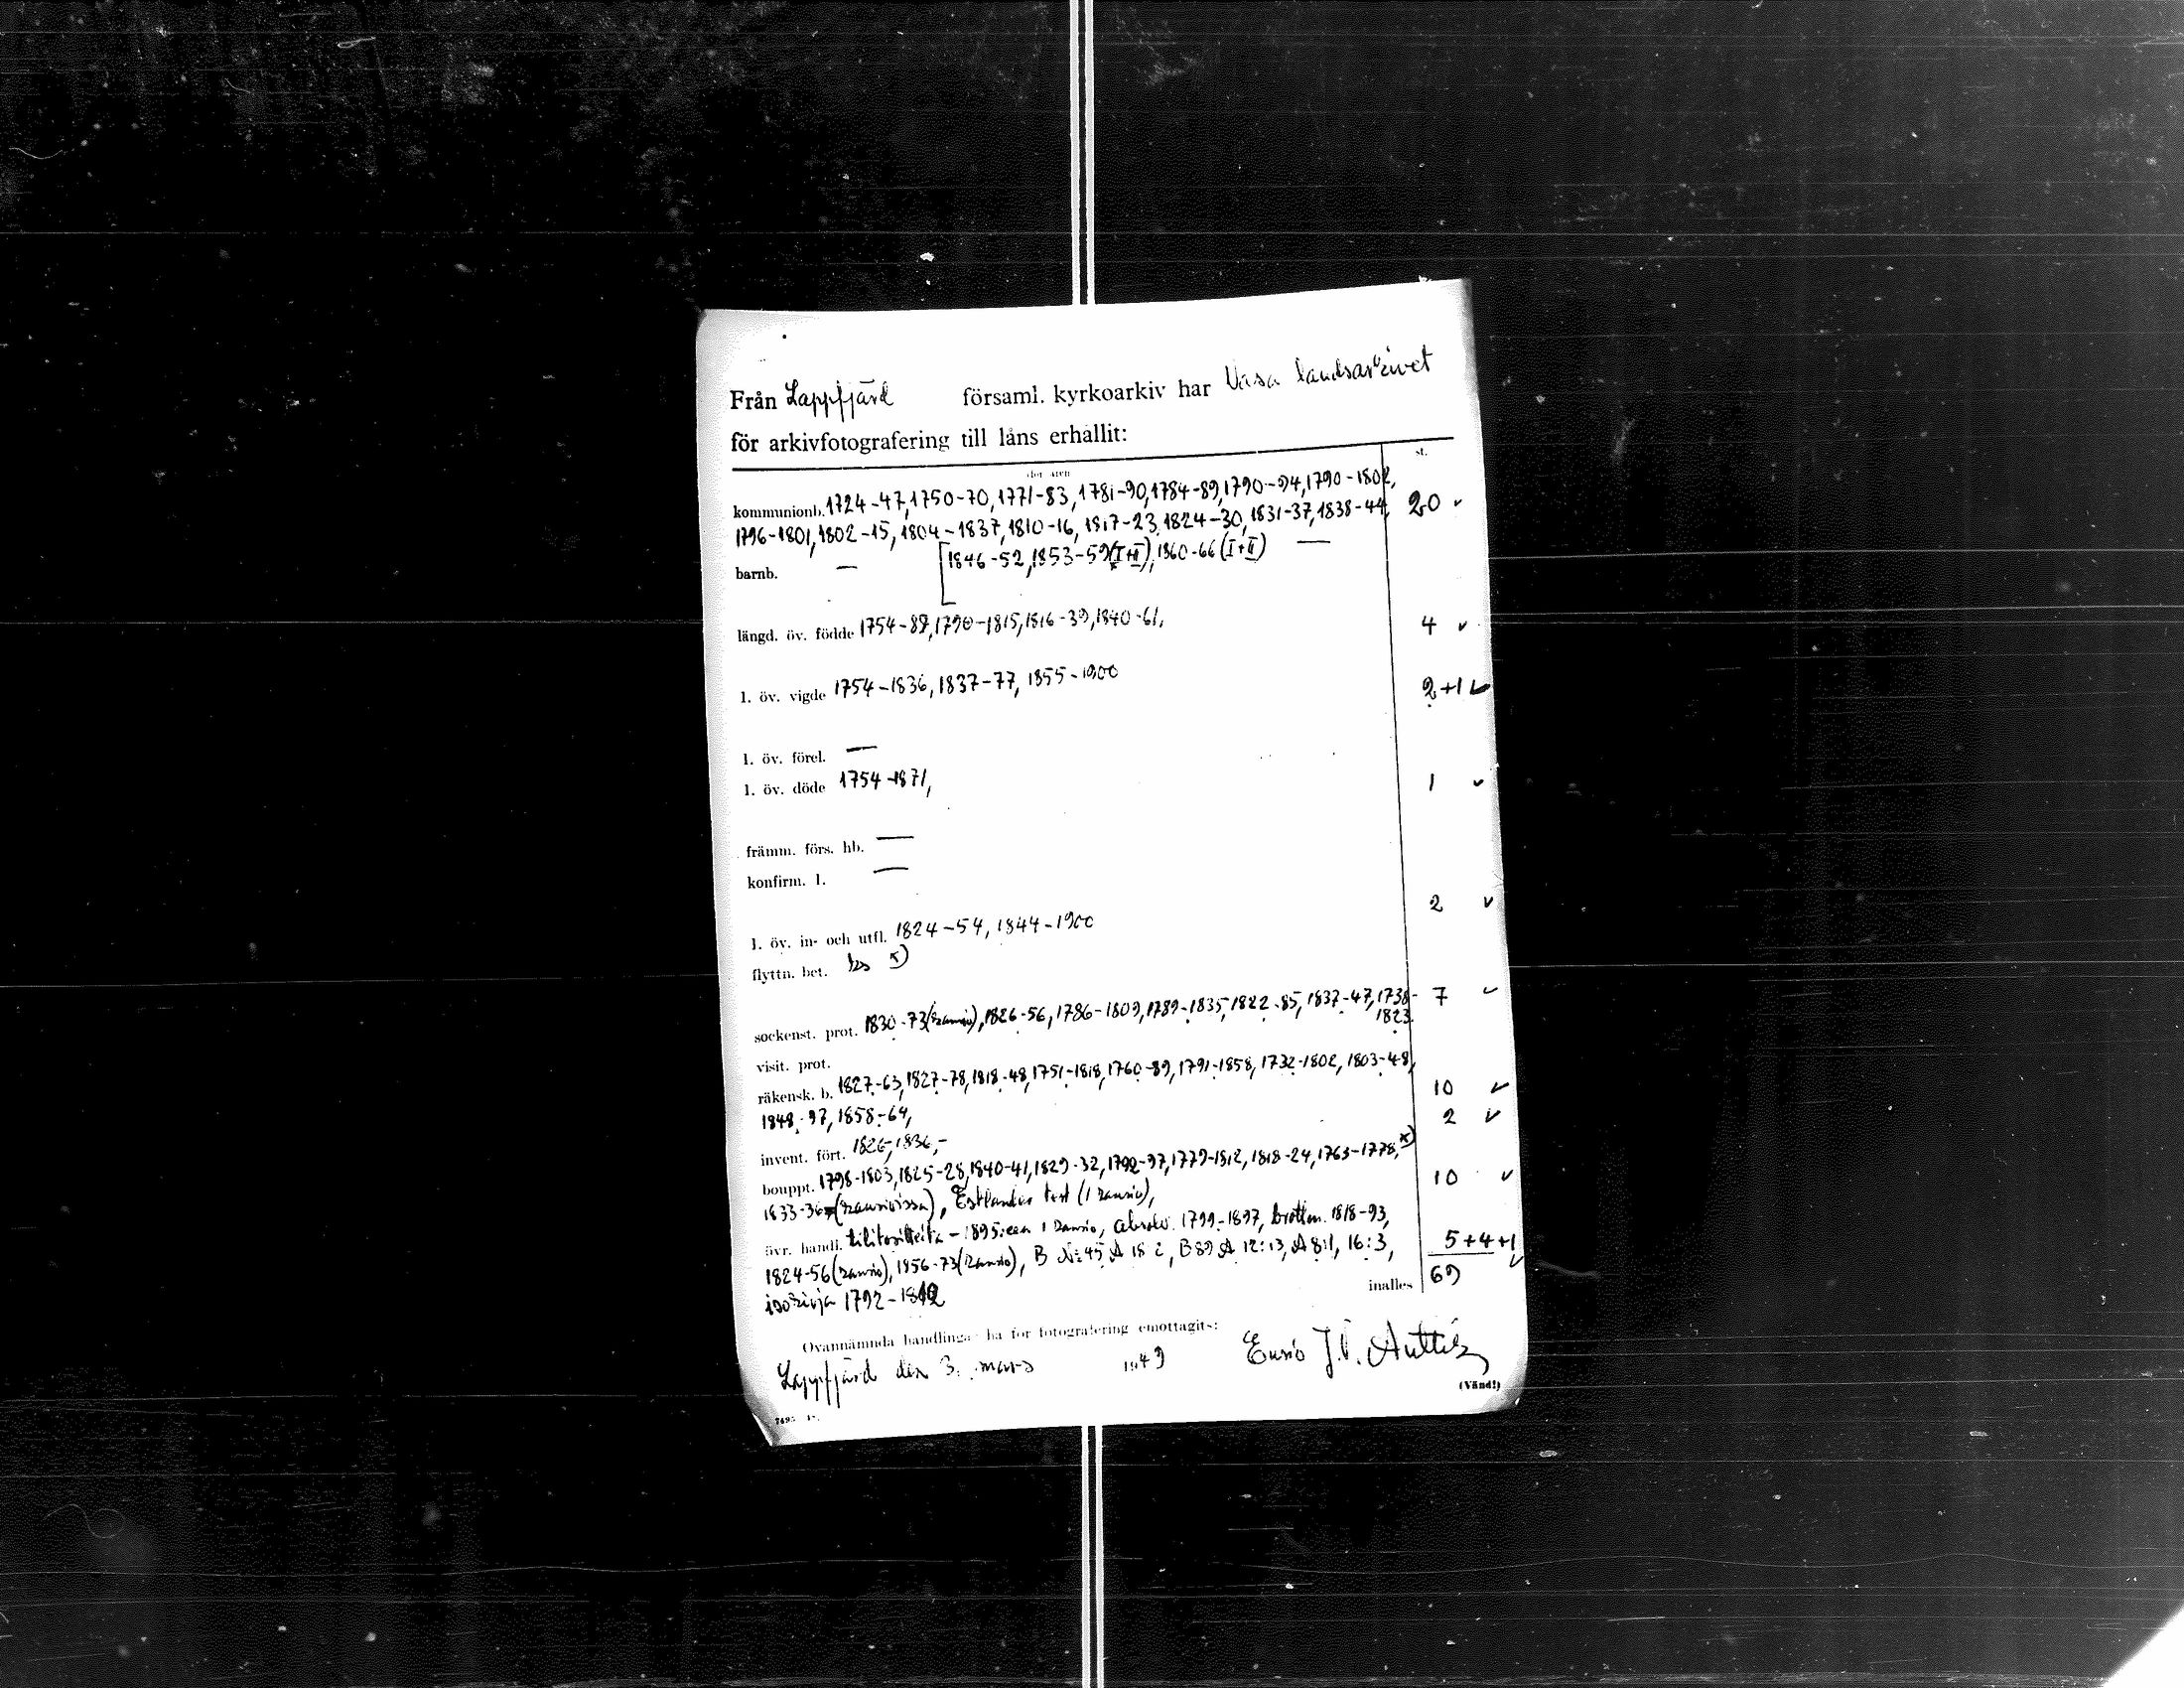 Från Lappfjärd församl. kyrkoarkiv har Vasa landsarkivet
för arkivfotografering till låns erhållit:
för åren st.
kommunionb. 1724-47, 1750-70, 1771-83, 1781-90, 1784-89, 1790-94, 1790-1802,
1796-1801, 1802-15, 1804-1837, 1810-16, 1817-23, 1824-30, 1831-37, 1838-44, 20 ✓
[1846-52, 1853-59 (I+II), 1860-66 (I+II) —
barnb. —
längd. öv. födde 1754-89, 1790-1815, 1816-39, 1840-61, 4 ✓
l. öv. vigde 1754-1836, 1837-77, 1855-1900 2+1 ✓
l. öv. förel. —
l. öv. döde 1754-1871, 1 ✓
främm. förs. hb. —
konfirm. l. —
l. öv. in- och utfl. 1824-54, 1844-1900 2 ✓
flyttn. bet. x)
sockenst. prot. 1830-73 (kansio), 1826-56, 1786-1809, 1789-1835, 1822-85, 1837-47, 1738- 7 ✓
1823.
visit. prot.
räkensk. b. 1827-63, 1827-78, 1818-48, 1751-1818, 1760-89, 1791-1858, 1732-1802, 1803-48, 10 ✓
1848-97, 1858-64,
invent. fört. 1826, 1836,- 2 ✓
bouppt. 1798-1803, 1825-28, 1840-41, 1829-32, 1792-97, 1779-1812, 1818-24, 1763-1778, x)
1833-36 (kansioissa), Estlander test (1 kansio), 10 ✓
övr. handl. tilitositteita -1895:een 1 kansio, absolv. 1799-1897, brottm. 1818-93,
1824-56 (kansio), 1856-73 (kansio), B N:45 A 18 2, B 89 A 12:13, A 8:1, 16:3, 5+4+1 ✓
isokirja 1792-1812 inalles 69
Ovannämnda handlingar ha för fotografering emottagits:
Lappfjärd den 3. mars 1949 Eusio J.V.
(Vänd!)